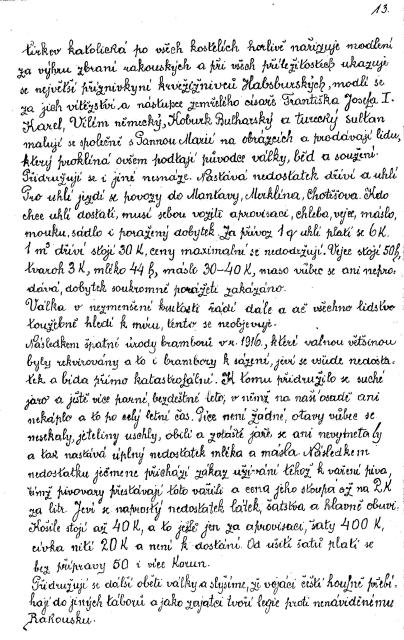 13.
církev katolická po všech kostelích horlivě nařizuje modlení
za výhru zbraní rakouských a při všech příležitostech ukazuje
se největší příznivkyní krvežíznivců Habsburských, modlí se
za jich vítězství a nástupce zemřelého císaře Františka Josefa I.
Karel, Vilém německý, Koburk Bulharský a turecký sultan
malují se společně s Pannou Marií na obrázcích a prodávají lidu,
který proklíná ovšem podtají původce války, běd a soužení.
Přidružují se i jiné nesnáze. Nastává nedostatek dříví a uhlí
Pro uhlí jezdí se povozy do Mantavy, Merklína, Chotěšova. Kdo
chce uhlí dostati, musí sebou voziti aprovisaci, chleba, vejce, máslo,
mouku, sádlo i poražený dobytek. Za přívoz 1 q uhlí platí se 6 K.
1 m³ dříví stojí 30 K, ceny maximalní se nedodržují. Vejce stojí 50 h,
tvaroh 3 K, mléko 44 h, máslo 30-40 K, maso vůbec se ani nepro-
dává, dobytek soukromně porážeti zakázáno.
Válka v nezmenšené krutosti řádí dále a ač všechno lidstvo
toužebně hledí k míru, tento se neobjevuje.
Následkem špatné úrody bramborů v r. 1916, které valnou většinou
byly rekvirovány a to i brambory k sázení, jeví se všude nedosta-
tek a bída přímo katastrofální. K tomu přidružilo se suché
jaro a ještě více parné, bezdeštné léto, v němž na naší osadě ani
nekáplo a to po celý letní čas. Píce není žádné, otavy vůbec se
nesekaly, jeteliny uschly, obilí a zvláště jaře se ani nevymetaly
a tak nastává úplný nedostatek mléka a másla. Následkem
nedostatku ječmene přichází zákaz užívání téhož k vaření piva,
čímž pivovary přestávají toto vařiti a cena jeho stoupá až na 2K
za litr. Jeví se naprostý nedostatek látek, šatstva a hlavně obuvi.
Košile stojí až 40 K, a to ještě jen za aprovisaci, šaty 400 K,
cívka nití 20 K a není k dostání. Od ušití šatů platí se
bez přípravy 50 i více Korun.
Přidružují se další oběti války a slyšíme, že vojáci čeští houfně přebí-
hají do jiných táborů a jako zajatci tvoří legie proti nenáviděnému
Rakousku.